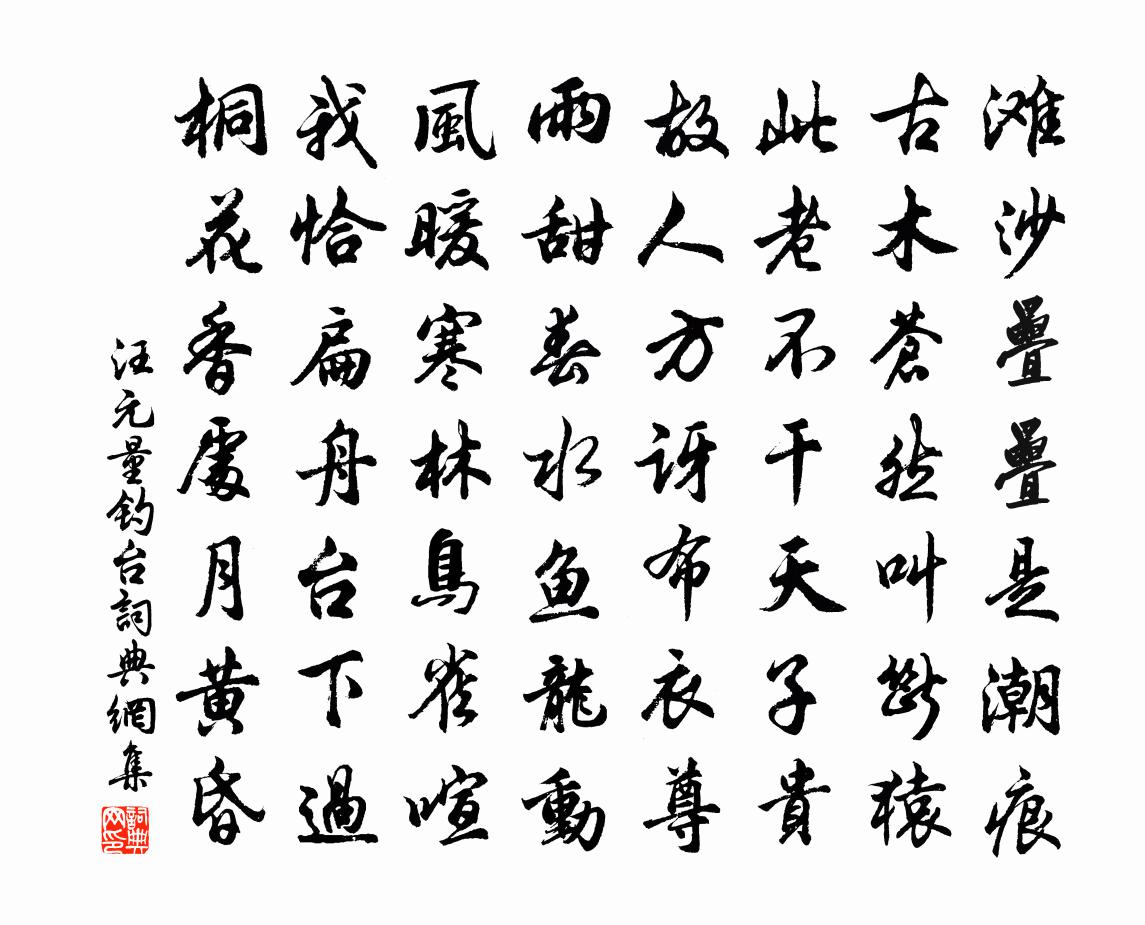 滩沙疊疊是潮痕
古木蒼然叫斷猿
此老不干天子貴
故人方訝布衣尊
雨甜春水魚龍動
風暖寒林鳥雀喧
我恰扁舟台下過
桐花香處月黃昏
汪元量钓台詞典網集
詞典网印